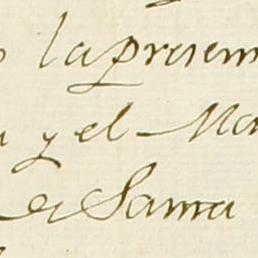 la presen
y el Ma
de Sama